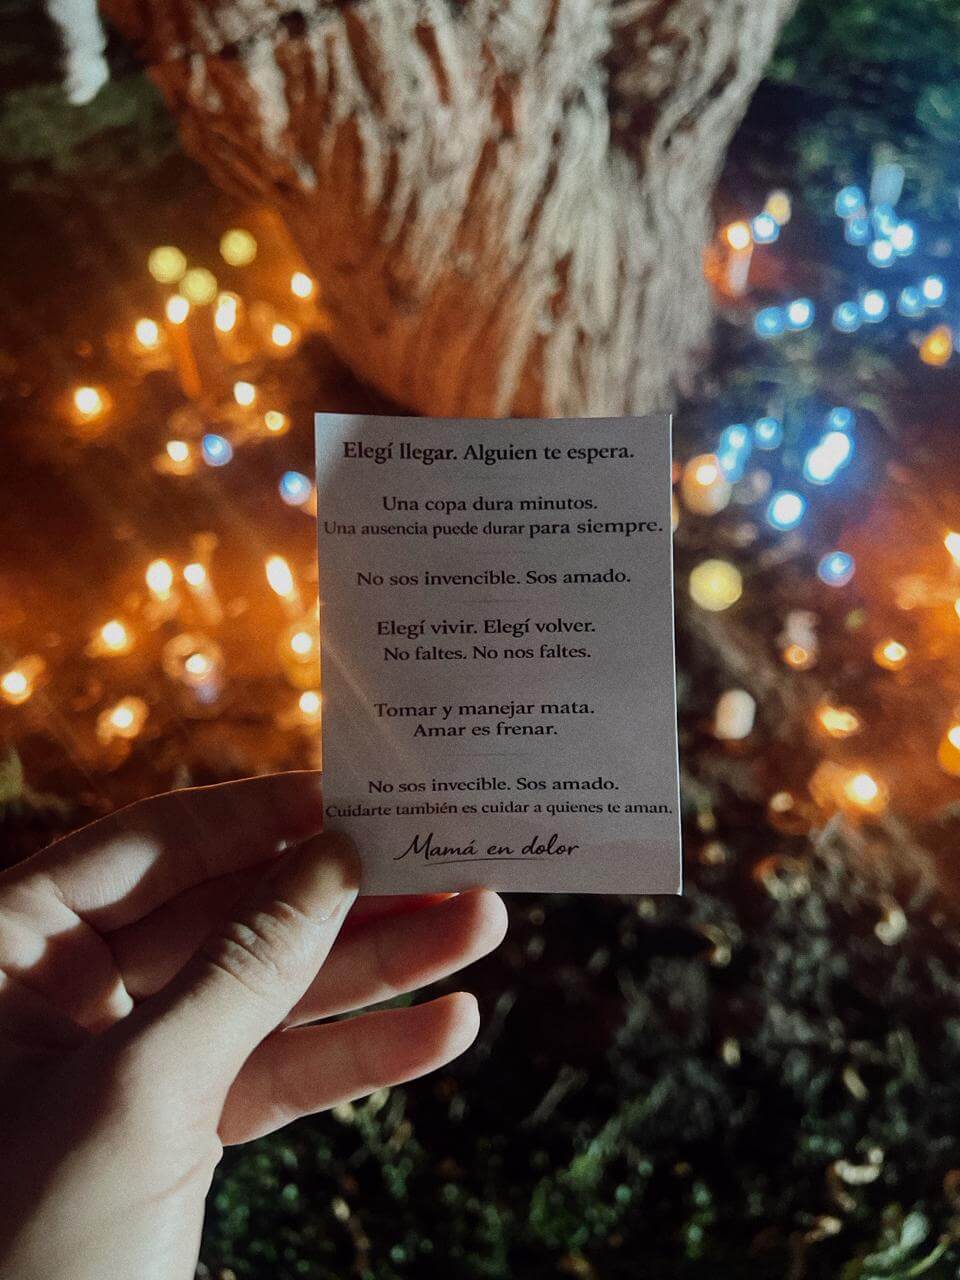 Elegí llegar. Alguien te espera.
Una copa dura minutos.
Una ausencia puede durar para siempre.
No sos invencible. Sos amado.
Elegí vivir. Elegí volver.
No faltes. No nos faltes.
Tomar y manejar mata.
Amar es frenar.
No sos invecible. Sos amado.
Cuidarte también es cuidar a quienes te aman.
Mamá en dolor